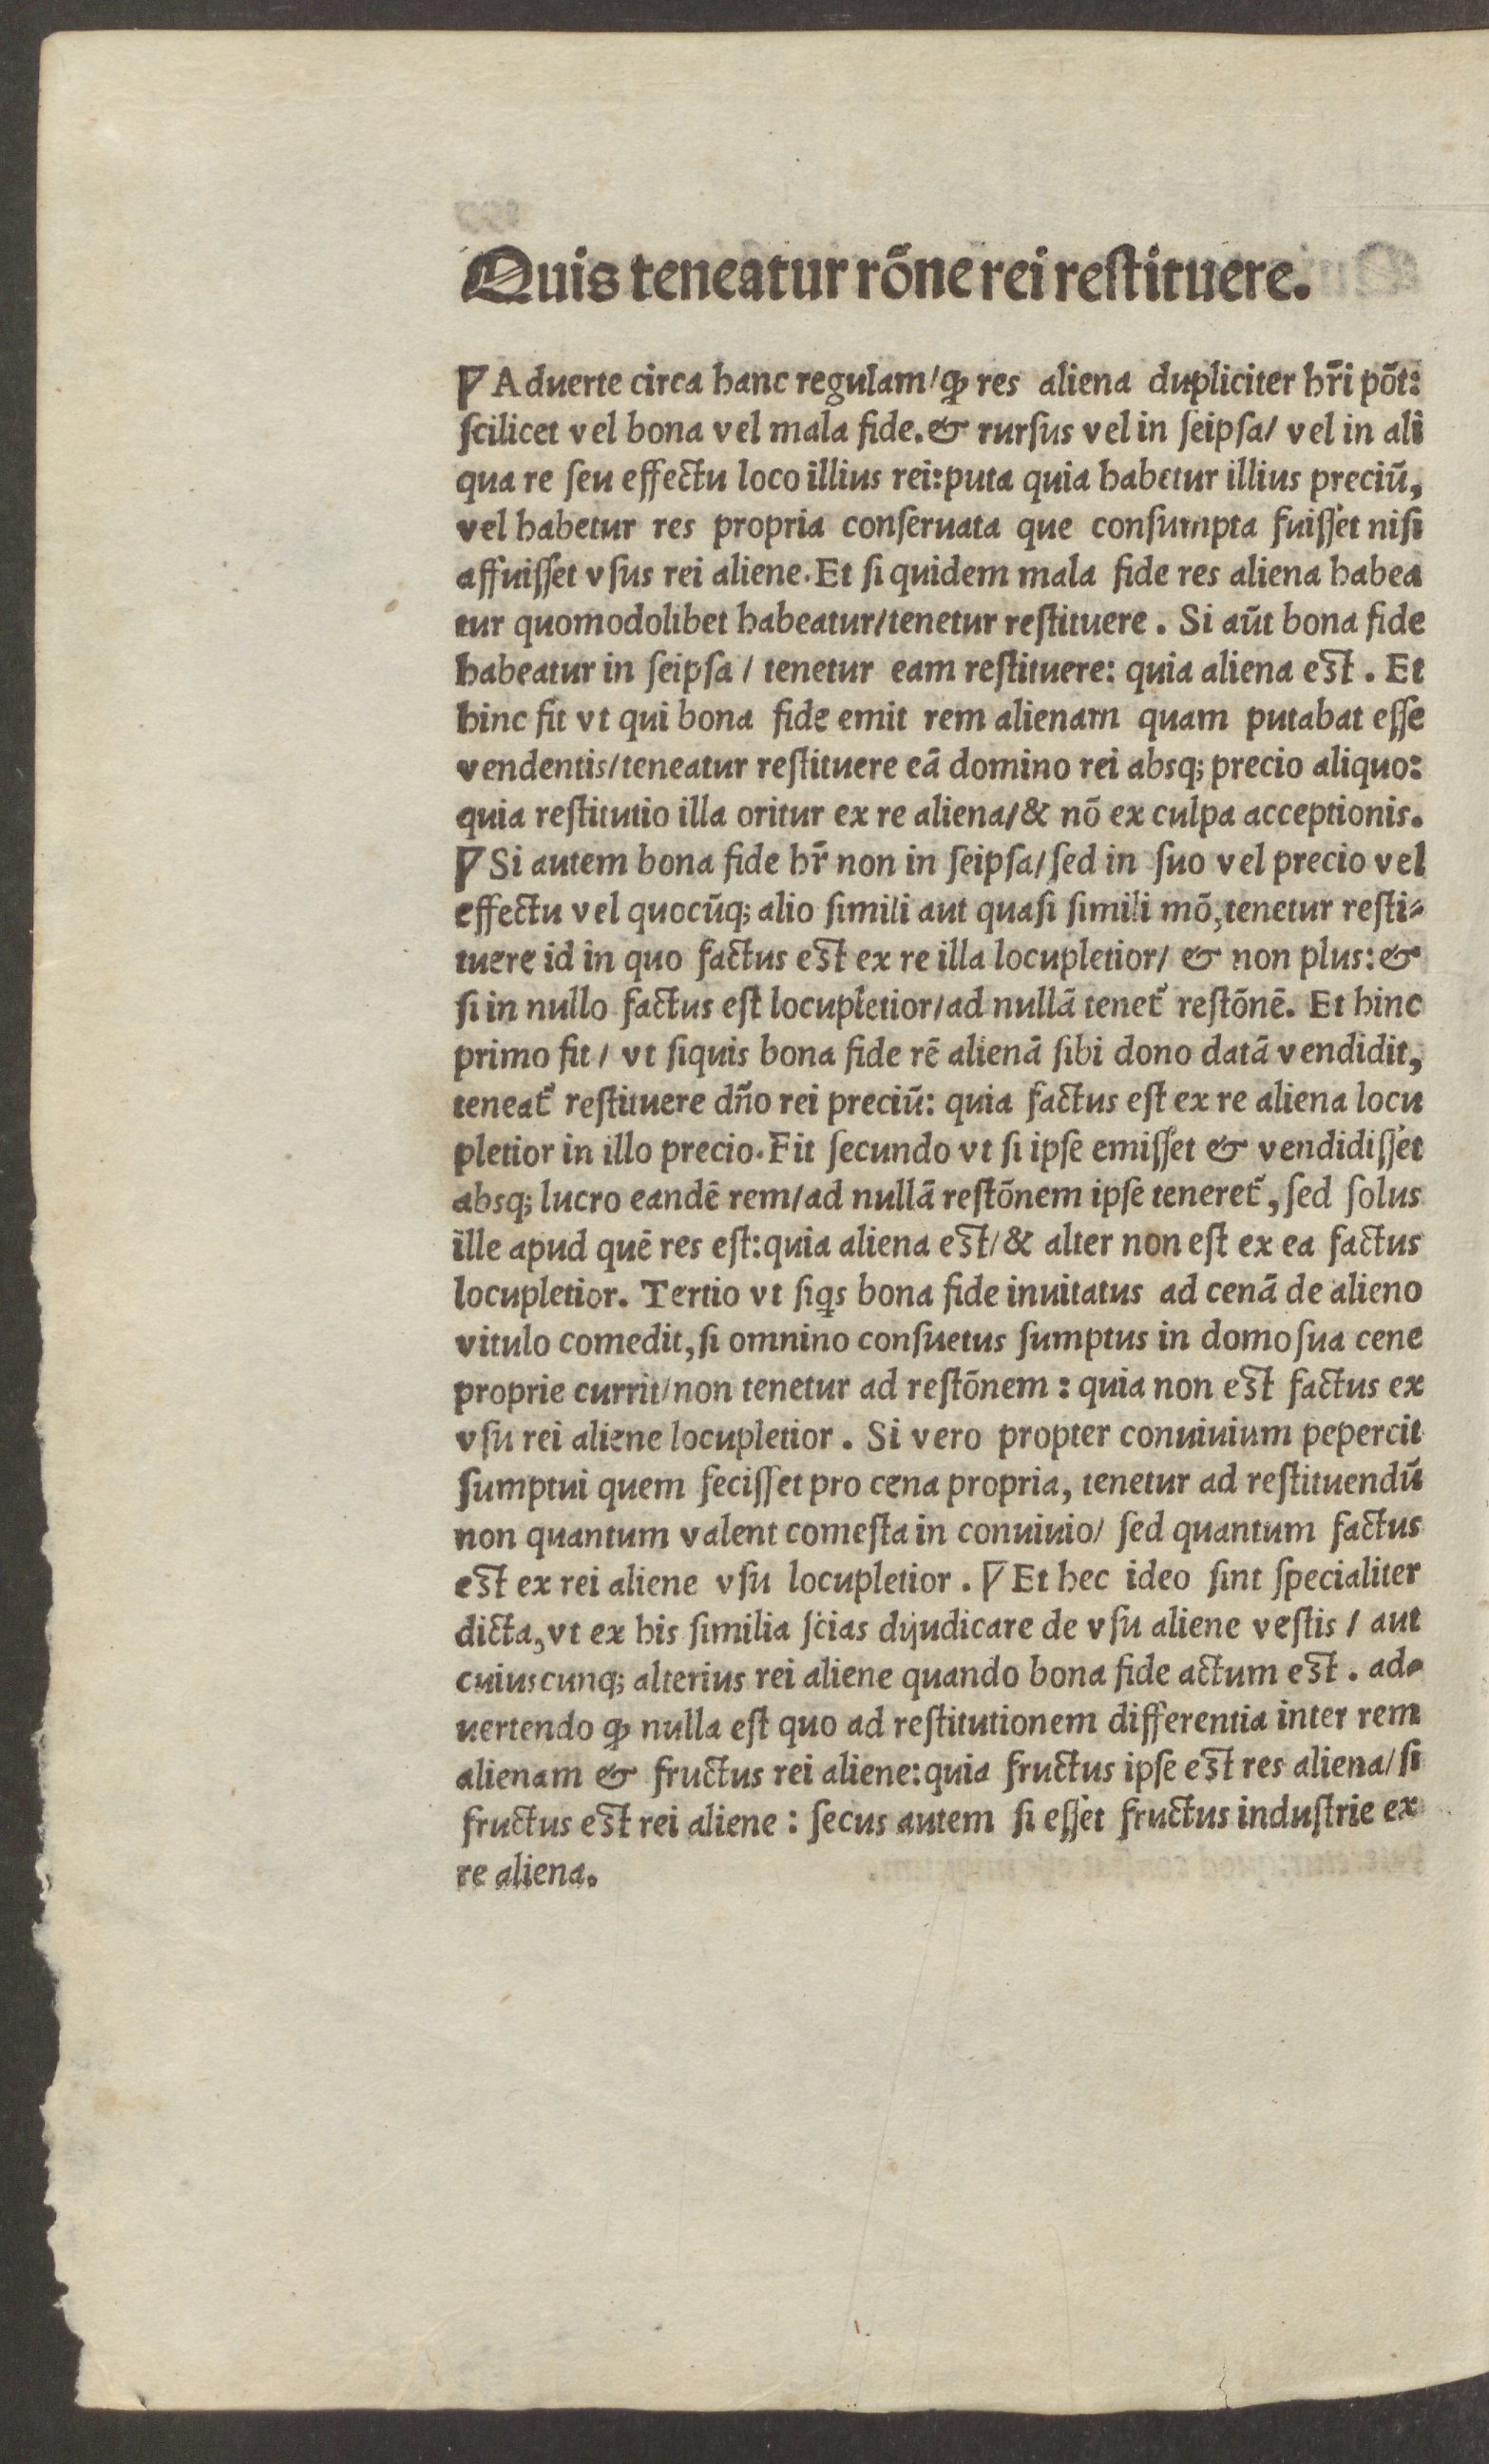 Quis teneatur rõne rei reſtituere.
¶ Aduerte circa hanc regulam/ ꝙ res aliena dupliciter hr̃i põt:
ſcilicet vel bona vel mala fide. & rurſus vel in ſeipſa/ vel in ali
qua re ſeu effectu loco illius rei: puta quia habetur illius preciũ,
vel habetur res propria conſeruata que conſumpta fuiſſet niſi
affuiſſet vſus rei aliene. Et ſi quidem mala fide res aliena habea
tur quomodolibet habeatur/ tenetur reſtituere. Si aũt bona fide
habeatur in ſeipſa/ tenetur eam reſtituere: quia aliena eſt. Et
hinc fit vt qui bona fide emit rem alienam quam putabat eſſe
vendentis/ teneatur reſtituere eã domino rei absq; precio aliquo:
quia reſtitutio illa oritur ex re aliena/ & nõ ex culpa acceptionis.
¶ Si autem bona fide hr̃ non in ſeipſa/ ſed in ſuo vel precio vel
effectu vel quocũq; alio ſimili aut quaſi ſimili mõ, tenetur reſti-
tuere id in quo factus eſt ex re illa locupletior/ & non plus: &
ſi in nullo factus eſt locupletior/ ad nullã tenet᷑ reſtõnẽ. Et hinc
primo fit/ vt ſiquis bona fide rẽ alienã ſibi dono datã vendidit,
teneat᷑ reſtituere dño rei preciũ: quia factus eſt ex re aliena locu
pletior in illo precio. Fit ſecundo vt ſi ipſe emiſſet & vendidiſſet
absq; lucro eandẽ rem/ ad nullã reſtõnem ipſe teneret᷑, ſed ſolus
ille apud quẽ res eſt: quia aliena eſt/ & alter non eſt ex ea factus
locupletior. Tertio vt ſiꝗs bona fide inuitatus ad cenã de alieno
vitulo comedit, ſi omnino conſuetus ſumptus in domo ſua cene
proprie currit/ non tenetur ad reſtõnem: quia non eſt factus ex
vſu rei aliene locupletior. Si vero propter conuiuium pepercit
ſumptui quem feciſſet pro cena propria, tenetur ad reſtituendũ
non quantum valent comeſta in conuiuio/ ſed quantum factus
eſt ex rei aliene vſu locupletior. ¶ Et hec ideo ſint ſpecialiter
dicta, vt ex his ſimilia ſcias dijudicare de vſu aliene veſtis/ aut
cuiuscunq; alterius rei aliene quando bona fide actum eſt. ad-
uertendo ꝙ nulla eſt quo ad reſtitutionem differentia inter rem
alienam & fructus rei aliene: quia fructus ipſe eſt res aliena/ ſi
fructus eſt rei aliene: ſecus autem ſi eſſet fructus induſtrie ex
re aliena.